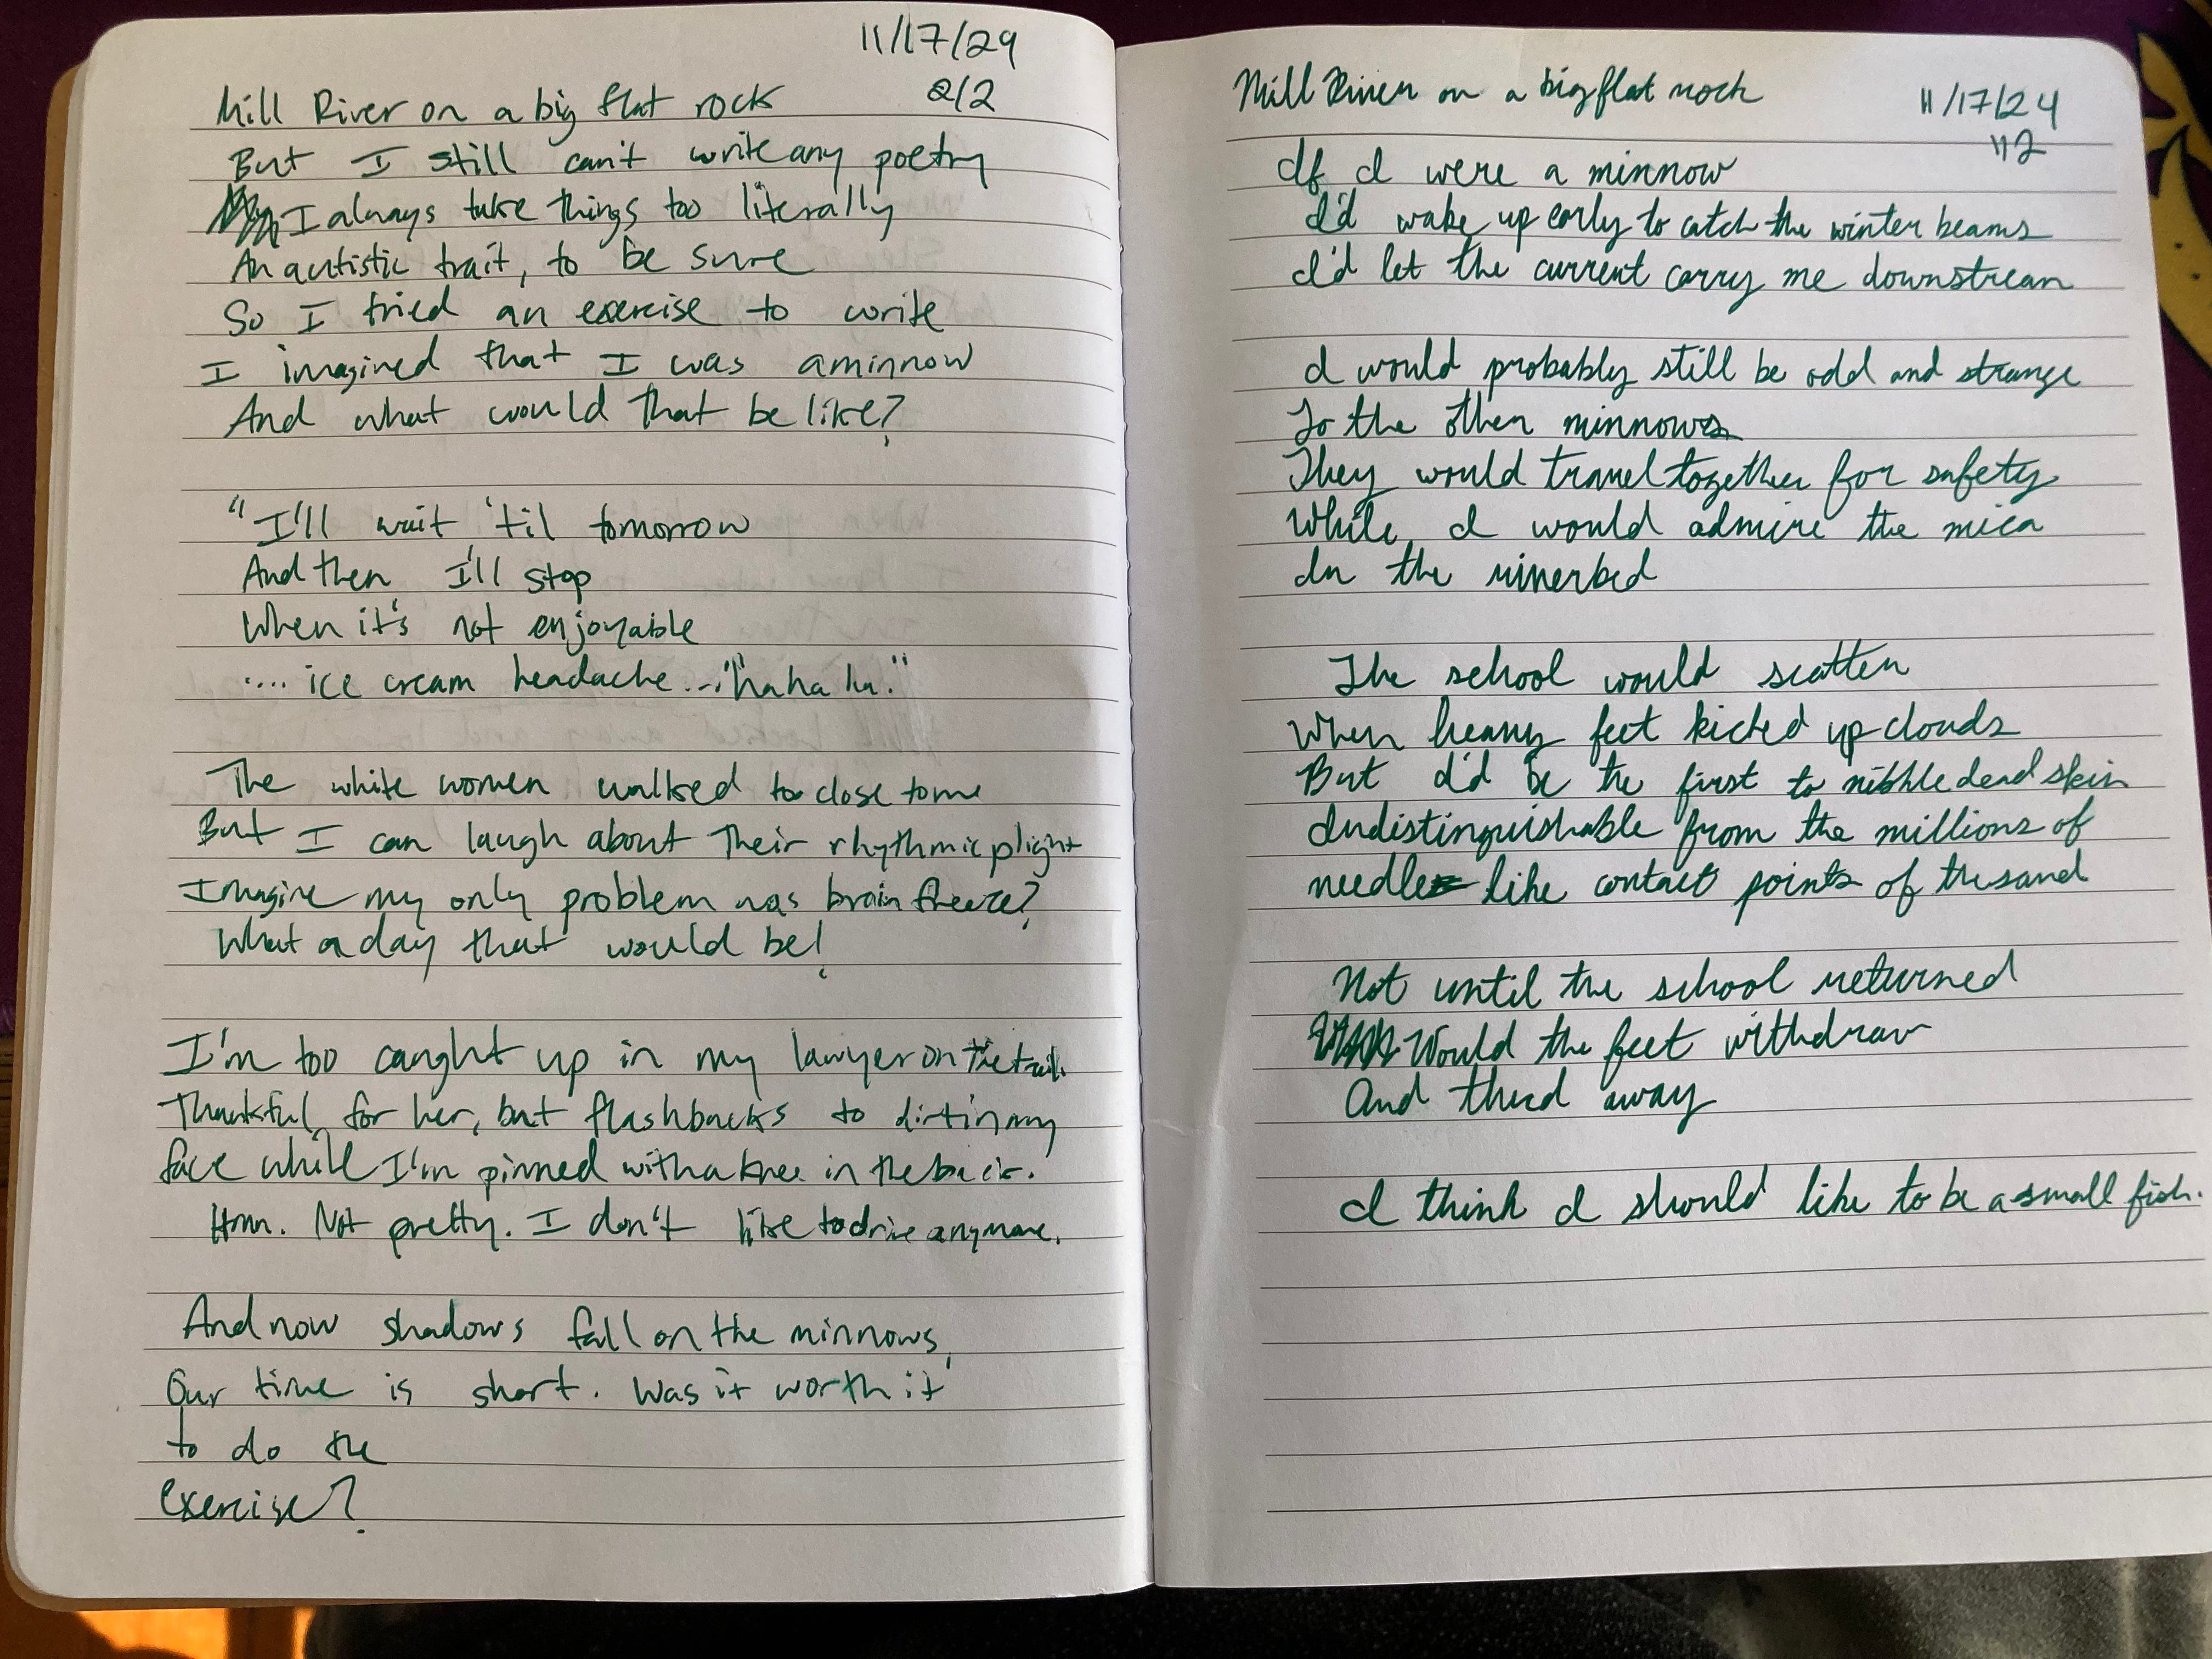 11/17/24
2/2
Mill River on a big flat rock
But I still can't write any poetry
I always take things too literally
An autistic trait, to be sure
So I tried an exercise to write
I imagined that I was a minnow
And what would that be like?
"I'll wait 'til tomorrow
And then I'll stop
When it's not enjoyable
.... ice cream headache... "haha ha."
The white women walked too close to me
But I can laugh about their rhythmic plight
Imagine my only problem was brain freeze?
What a day that would be!
I'm too caught up in my lawyer on the tail.
Thankful for her, but flashbacks to dirt in my
face while I'm pinned with a knee in the back.
Hmm. Not pretty. I don't like to drive anymore.
And now shadows fall on the minnows,
Our time is short. Was it worth it
to do the
exercise?
Mill River on a big flat rock
11/17/24
1/2
If I were a minnow
I'd wake up early to catch the winter beams
I'd let the current carry me downstream
I would probably still be odd and strange
To the other minnows
They would travel together for safety
While I would admire the mica
In the riverbed
The school would scatter
When heavy feet kicked up clouds
But I'd be the first to nibble dead skin
Indistinguishable from the millions of
needle like contact points of the sand
Not until the school returned
Would the feet withdraw
And thud away
I think I should like to be a small fish.